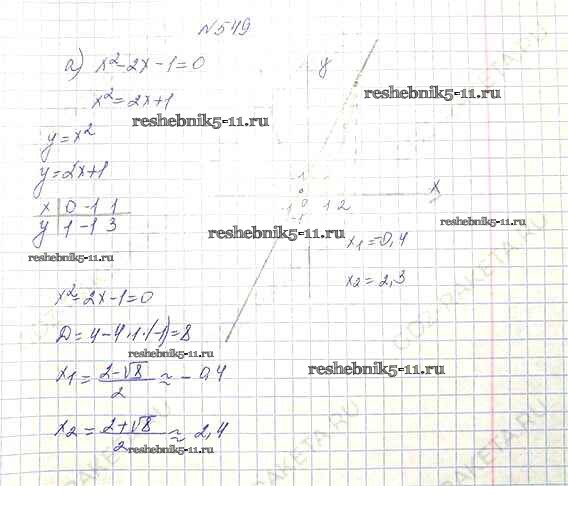 N549
а) x²-2x-1=0
y
x²=2x+1
reshebnik5-11.ru
reshebnik5-11.ru
y=x²
y=2x+1
x 0 -1 1
y 1 -1 3
1
0
-1 0 1 2
-1
x
reshebnik5-11.ru
reshebnik5-11.ru
reshebnik5-11.ru
x1=-0,4
x2=2,3
x²-2x-1=0
D=4-4·1·(-1)=8
reshebnik5-11.ru
reshebnik5-11.ru
x1=2-√8/2≈-0,4
x2=2+√8/2≈2,4
reshebnik5-11.ru